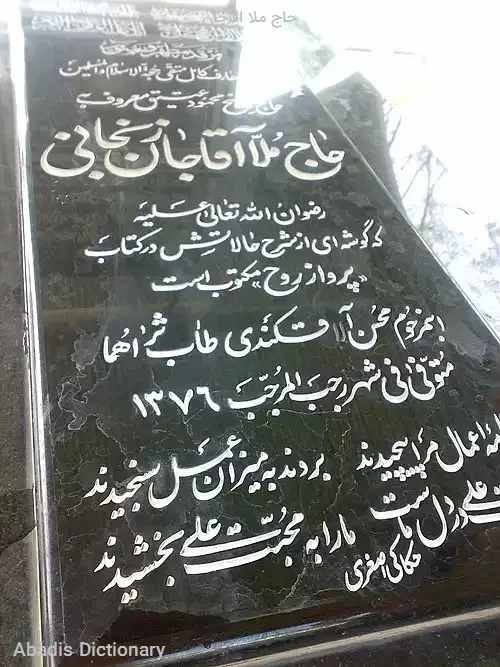 حاج ملا آقاجا
عارف کامل متقی حجة الاسلام والمسلمین
حاج شیخ محمود عتیق معروف به
حاج ملا آقاجان زنجانی
رضوان الله تعالی علیه
که گوشه ای از شرح حالاتش در کتاب
«پرواز روح» مکتوب است
ابمرحوم محسن آلاقکندی طاب ثراهما
متوفی فی شهر رجب المرجب ۱۳۷۶
اعمال مرا پیچیدند بردند به میزان عمل سنجیدند
علی در دل ماست ما را به محبت علی بخشیدند
حکاکی اصغری
Abadis Dictionary